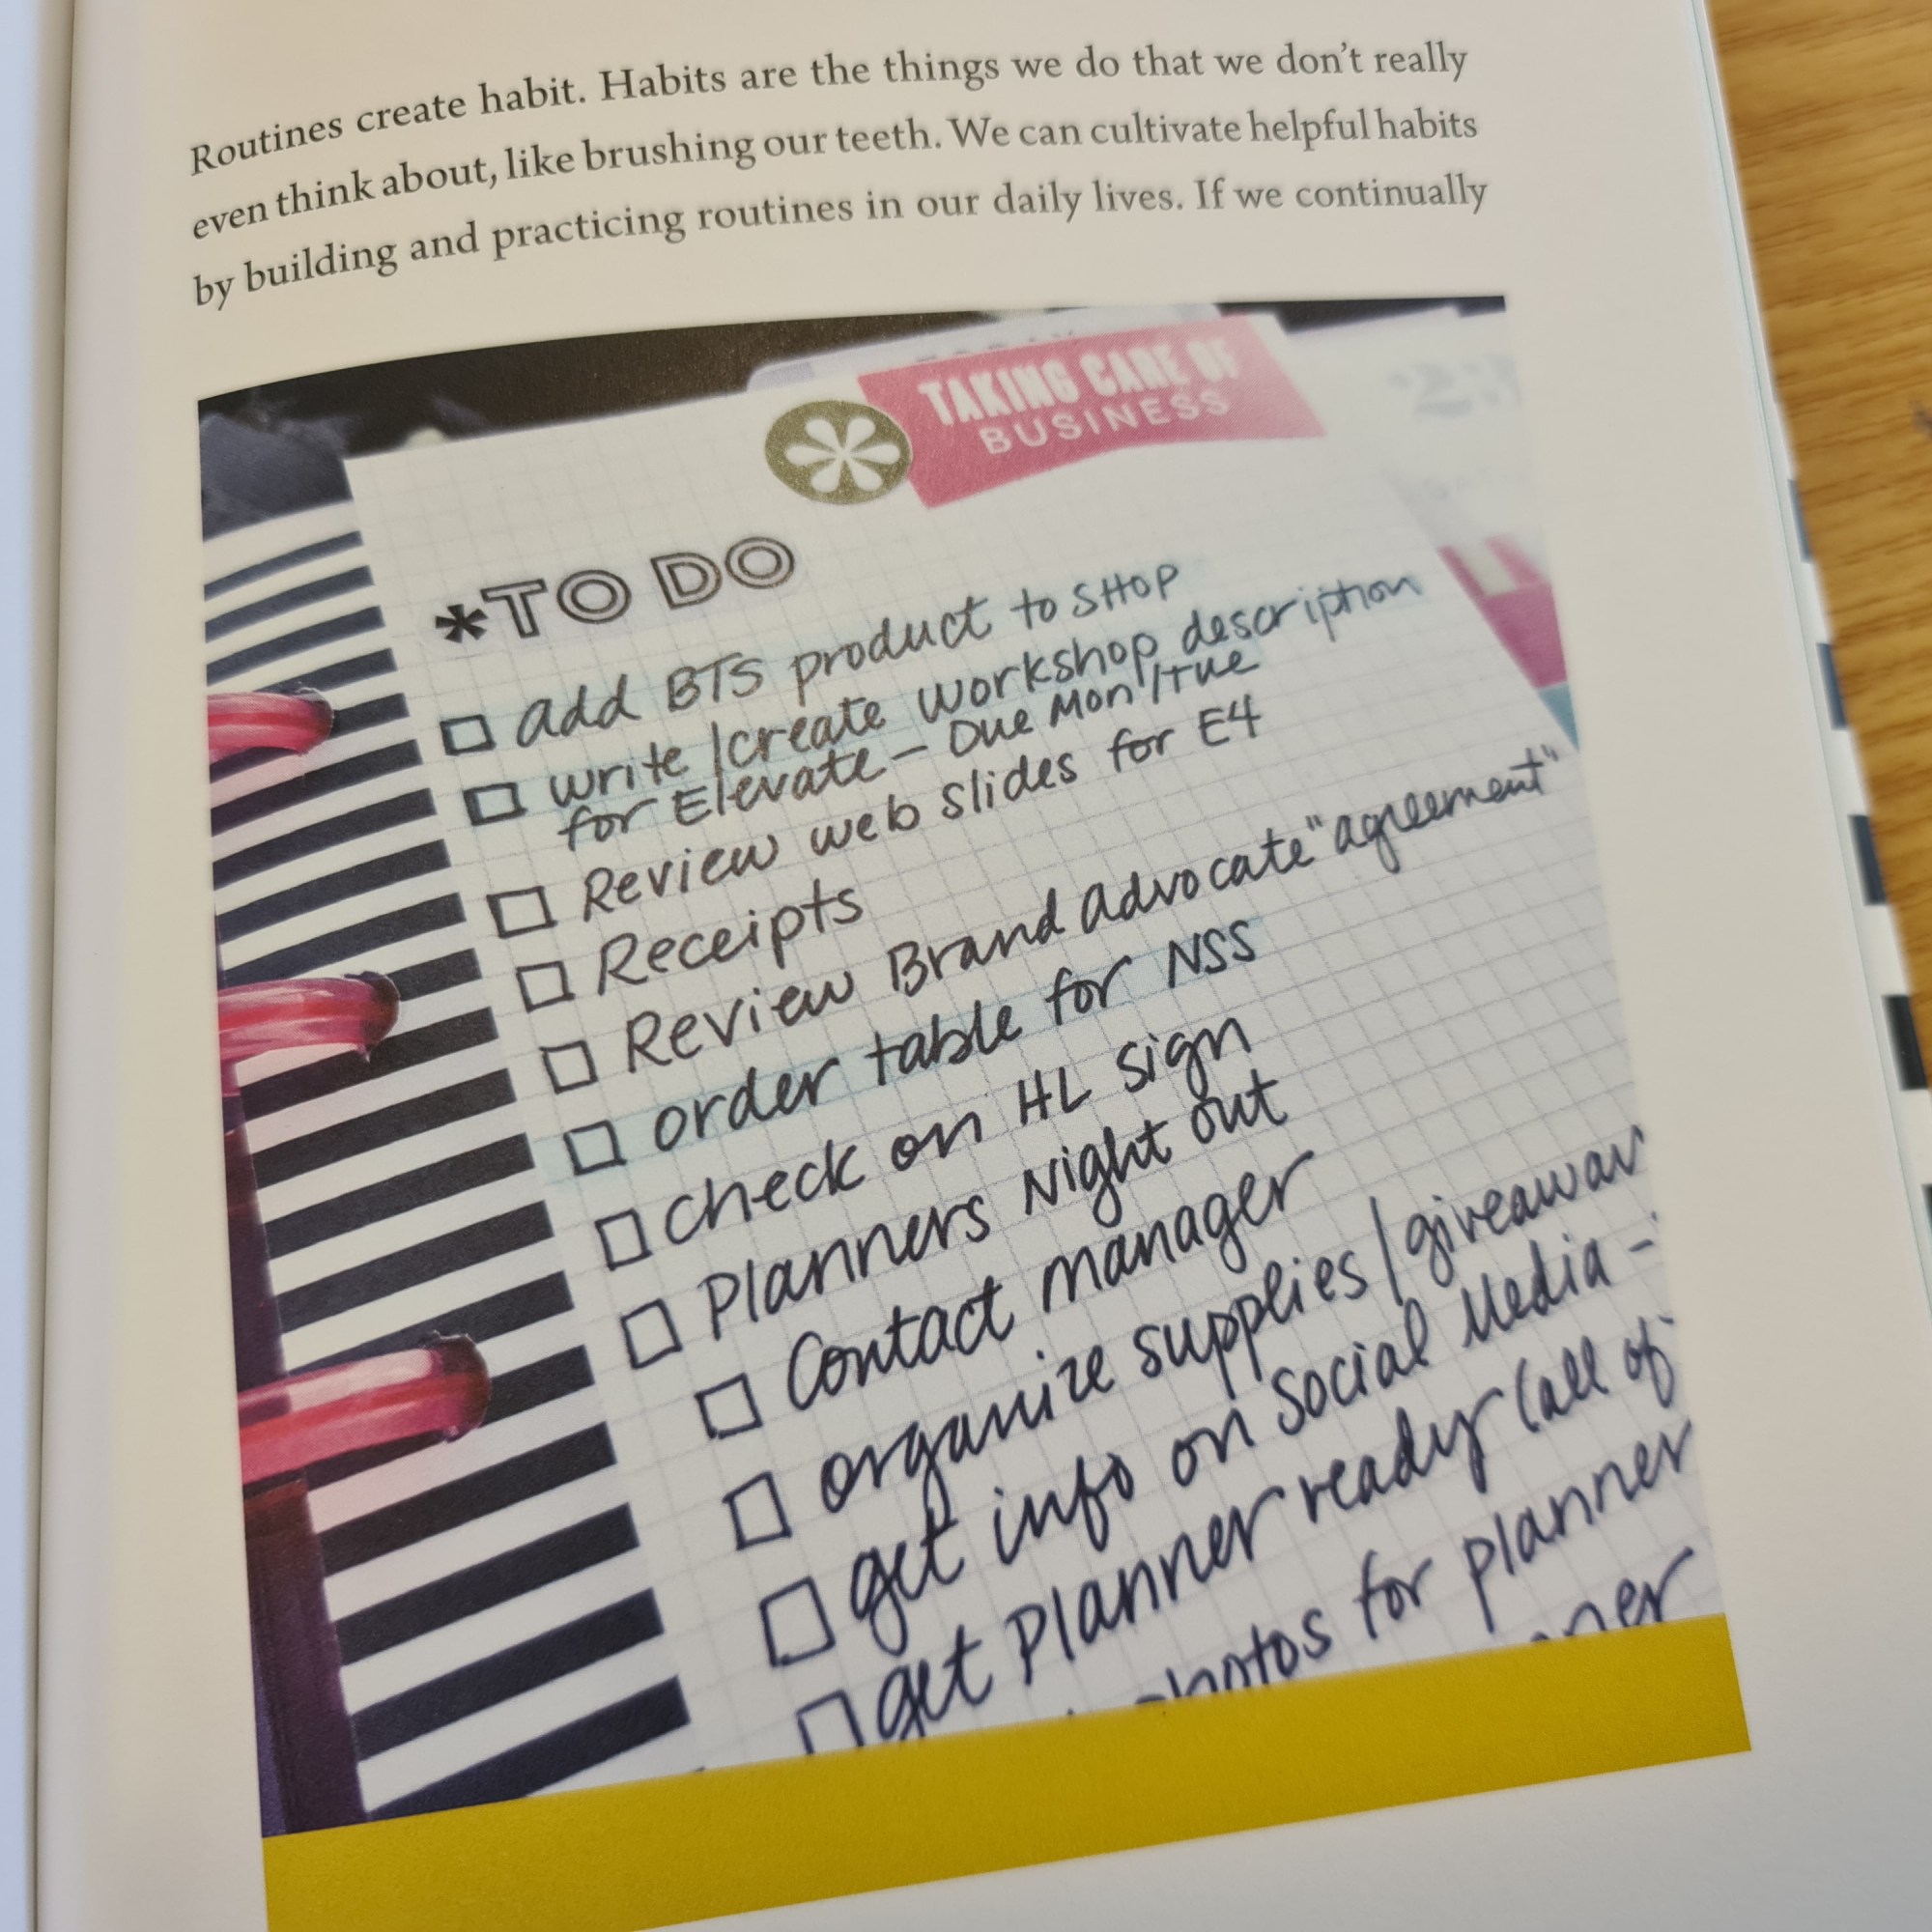 Routines create habit. Habits are the things we do that we don't really
even think about, like brushing our teeth. We can cultivate helpful habits
by building and practicing routines in our daily lives. If we continually
TAKING CARE OF
BUSINESS
*TO DO
add BTS product to SHOP
write/create workshop description
for Elevate - Due Mon/Tue
Review web slides for E4
Receipts
Review Brand advocate "agreement"
order table for NSS
check on HL sign
Planners Night out
Contact manager
organize supplies/giveaway
get info on Social Media -
get Planner ready (all of
photos for planner